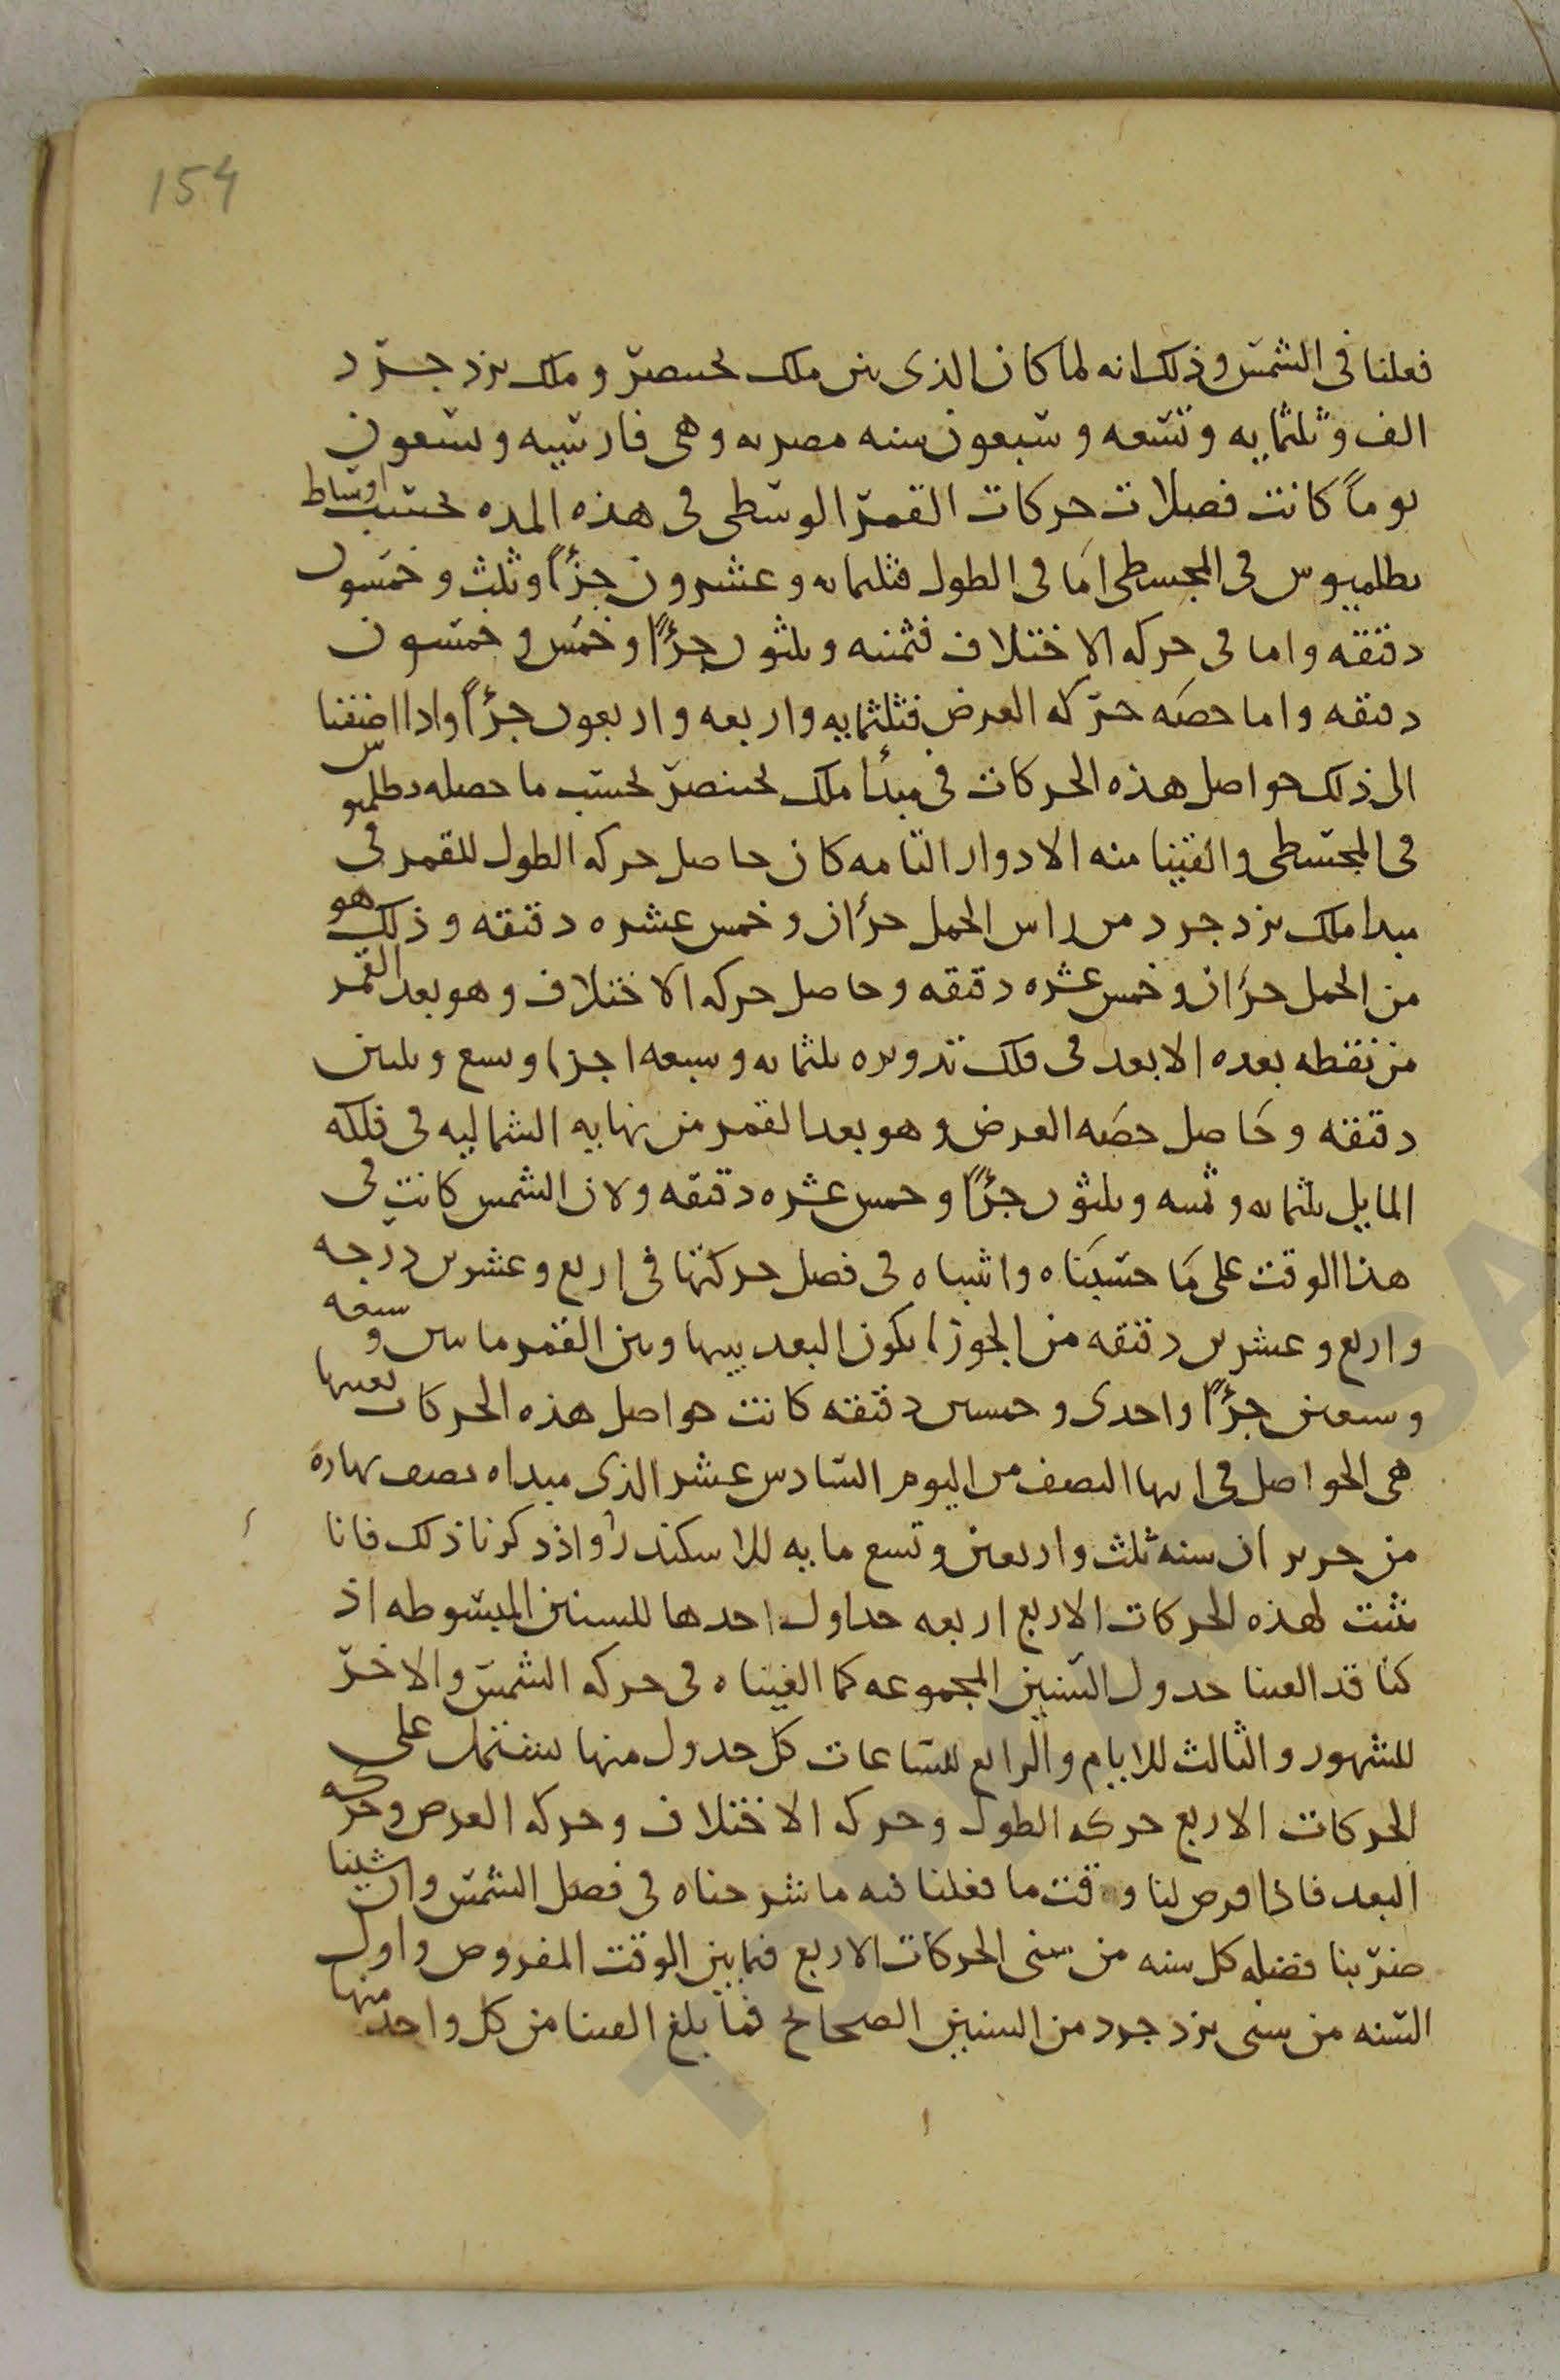 154
فعلنا فى الشمس وذلك انه لما كان الذى بين ملك بختنصر وملك يزدجرد
الف وثلثمايه وتسعه وسبعون سنه مصريه وهى فارسيه وتسعون
يوماً كانت فضلات حركات القمر الوسطى فى هذه المده بحسب اوساط
بطلميوس فى المجسطى اما فى الطول فثلثمايه وعشرون جزءاً وثلث وخمسون
دقيقه واما فى حركه الاختلاف فثمنيه وثلثون جزءاً وخمس وخمسون
دقيقه واما حصه حركه العرض فثلثمايه واربعه واربعون جزءاً واذا اضفنا
الى ذلك حواصل هذه الحركات فى مبدأ ملك بختنصر بحسب ما حصله بطلميوس
فى المجسطى والقينا منه الادوار التامه كان حاصل حركه الطول للقمر فى
مبدا ملك يزدجرد من راس الحمل جزءان وخمس عشره دقيقه وذلك هو
من الحمل جزءان وخمس عشره دقيقه وحاصل حركه الاختلاف وهو بعد القمر
من نقطه بعده الابعد فى فلك تدويره ثلثمايه وسبعه اجزا وسبع وثلثين
دقيقه وحاصل حصه العرض وهو بعد القمر من نهايه الشماليه فى فلكه
المايل ثلثمايه وثمنيه وثلثون جزءاً وخمس عشره دقيقه ولان الشمس كانت فى
هذا الوقت على ما حسبناه واثبتناه فى فصل حركتها فى اربع وعشرين درجه
واربع وعشرين دقيقه من الجوزا يكون البعد بينها وبين القمر مايتين وسبعه
وسبعين جزءاً واحدى وخمسين دقيقه كانت حواصل هذه الحركات بعينها
هى الحواصل فى انتها النصف من اليوم السادس عشر الذى مبداه نصف نهاره
من حزيران سنه ثلث واربعين وتسع مايه للاسكندر واذ ذكرنا ذلك فانا
نثبت لهذه الحركات الاربع اربعه جداول احدها للسنين المبسوطه اذ
كنا قد القينا جدول السنين المجموعه كما القيناه فى حركه الشمس والاخر
للشهور والثالث للايام والرابع للساعات كل جدول منها يشتمل على
الحركات الاربع حركه الطول وحركه الاختلاف وحركه العرض وحركه
البعد فاذا فرض لنا وقت ما فعلنا فيه ما شرحناه فى فصل الشمس وان شينا
ضربنا فضله كل سنه من سنى الحركات الاربع فيما بين الوقت المفروض واول
السنه من سنى يزدجرد من السنين الصحاح فما بلغ القينا من كل واحد منها